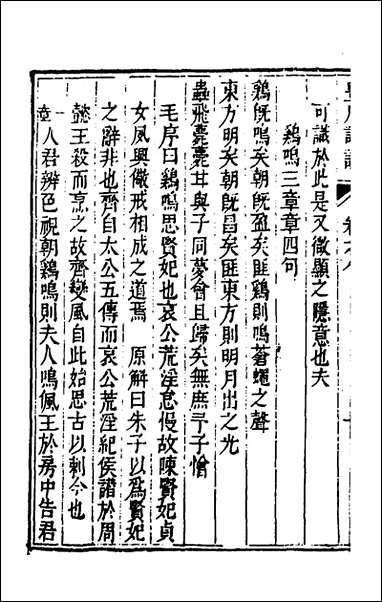 可識於此是又微顯之隱意也夫
鷄鳴三章章四句
鷄旣鳴矣朝旣盈矣匪鷄則鳴蒼蠅之聲
東方明矣朝旣昌矣匪東方則明月出之光
蟲飛薨薨甘與子同夢會且歸矣無庶予子憎
毛序曰鷄鳴思賢妃也哀公荒淫怠慢故陳賢妃貞
女夙興儆戒相成之道焉 原解曰朱子以爲賢妃
之辭非也齊自太公五傳而哀公荒淫紀侯譖於周
懿王殺而烹之故齊變風自此始思古以刺今也
一章人君辨色視朝鷄鳴則夫人鳴佩玉於房中告君